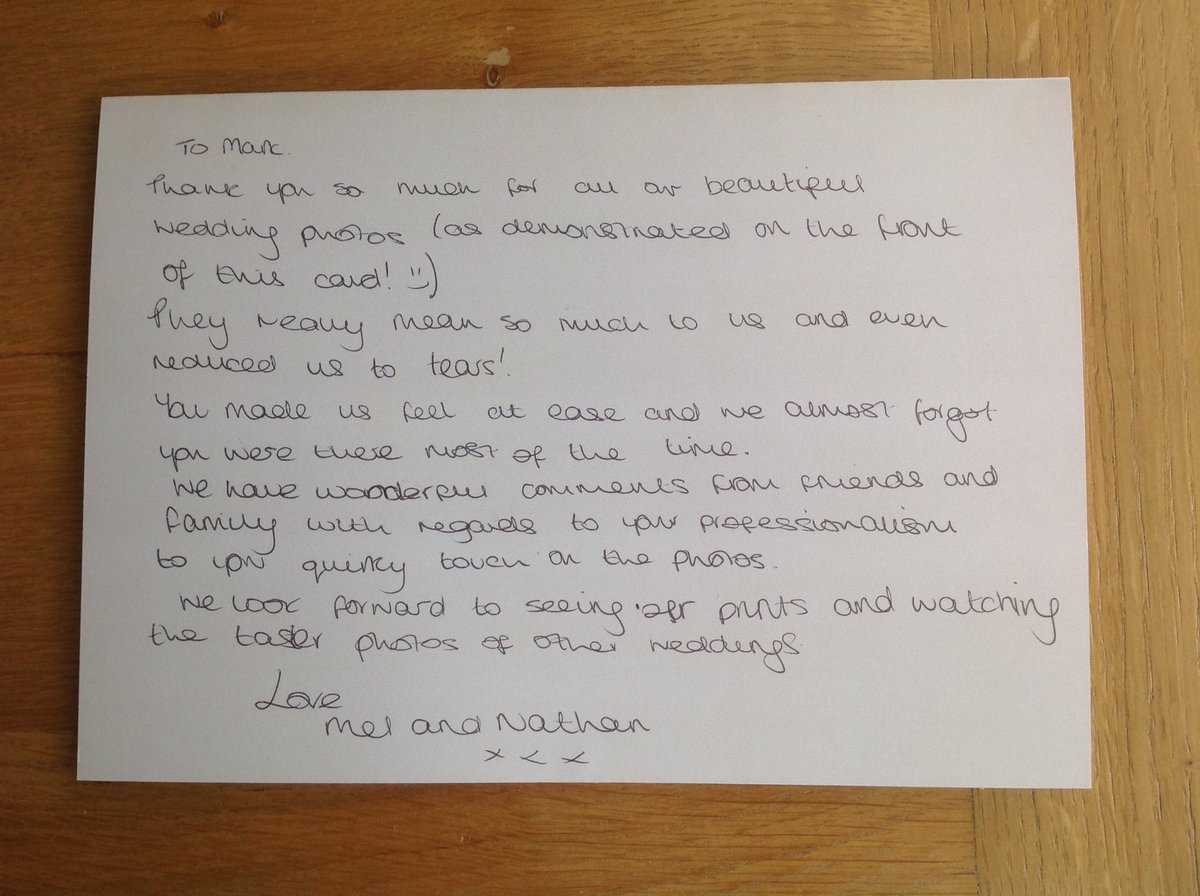 To Mark.
Thank you so much for all our beautiful
wedding photos (as demonstrated on the front
of this card! :))
They really mean so much to us and even
reduced us to tears!
You made us feel at ease and we almost forgot
you were there most of the time.
We have wooderful comments from friends and
family with regards to your professionalism
to your quirky touch on the photos.
We look forward to seeing our prints and watching
the taster photos of other weddings.
Love
Mel and Nathan
x x x